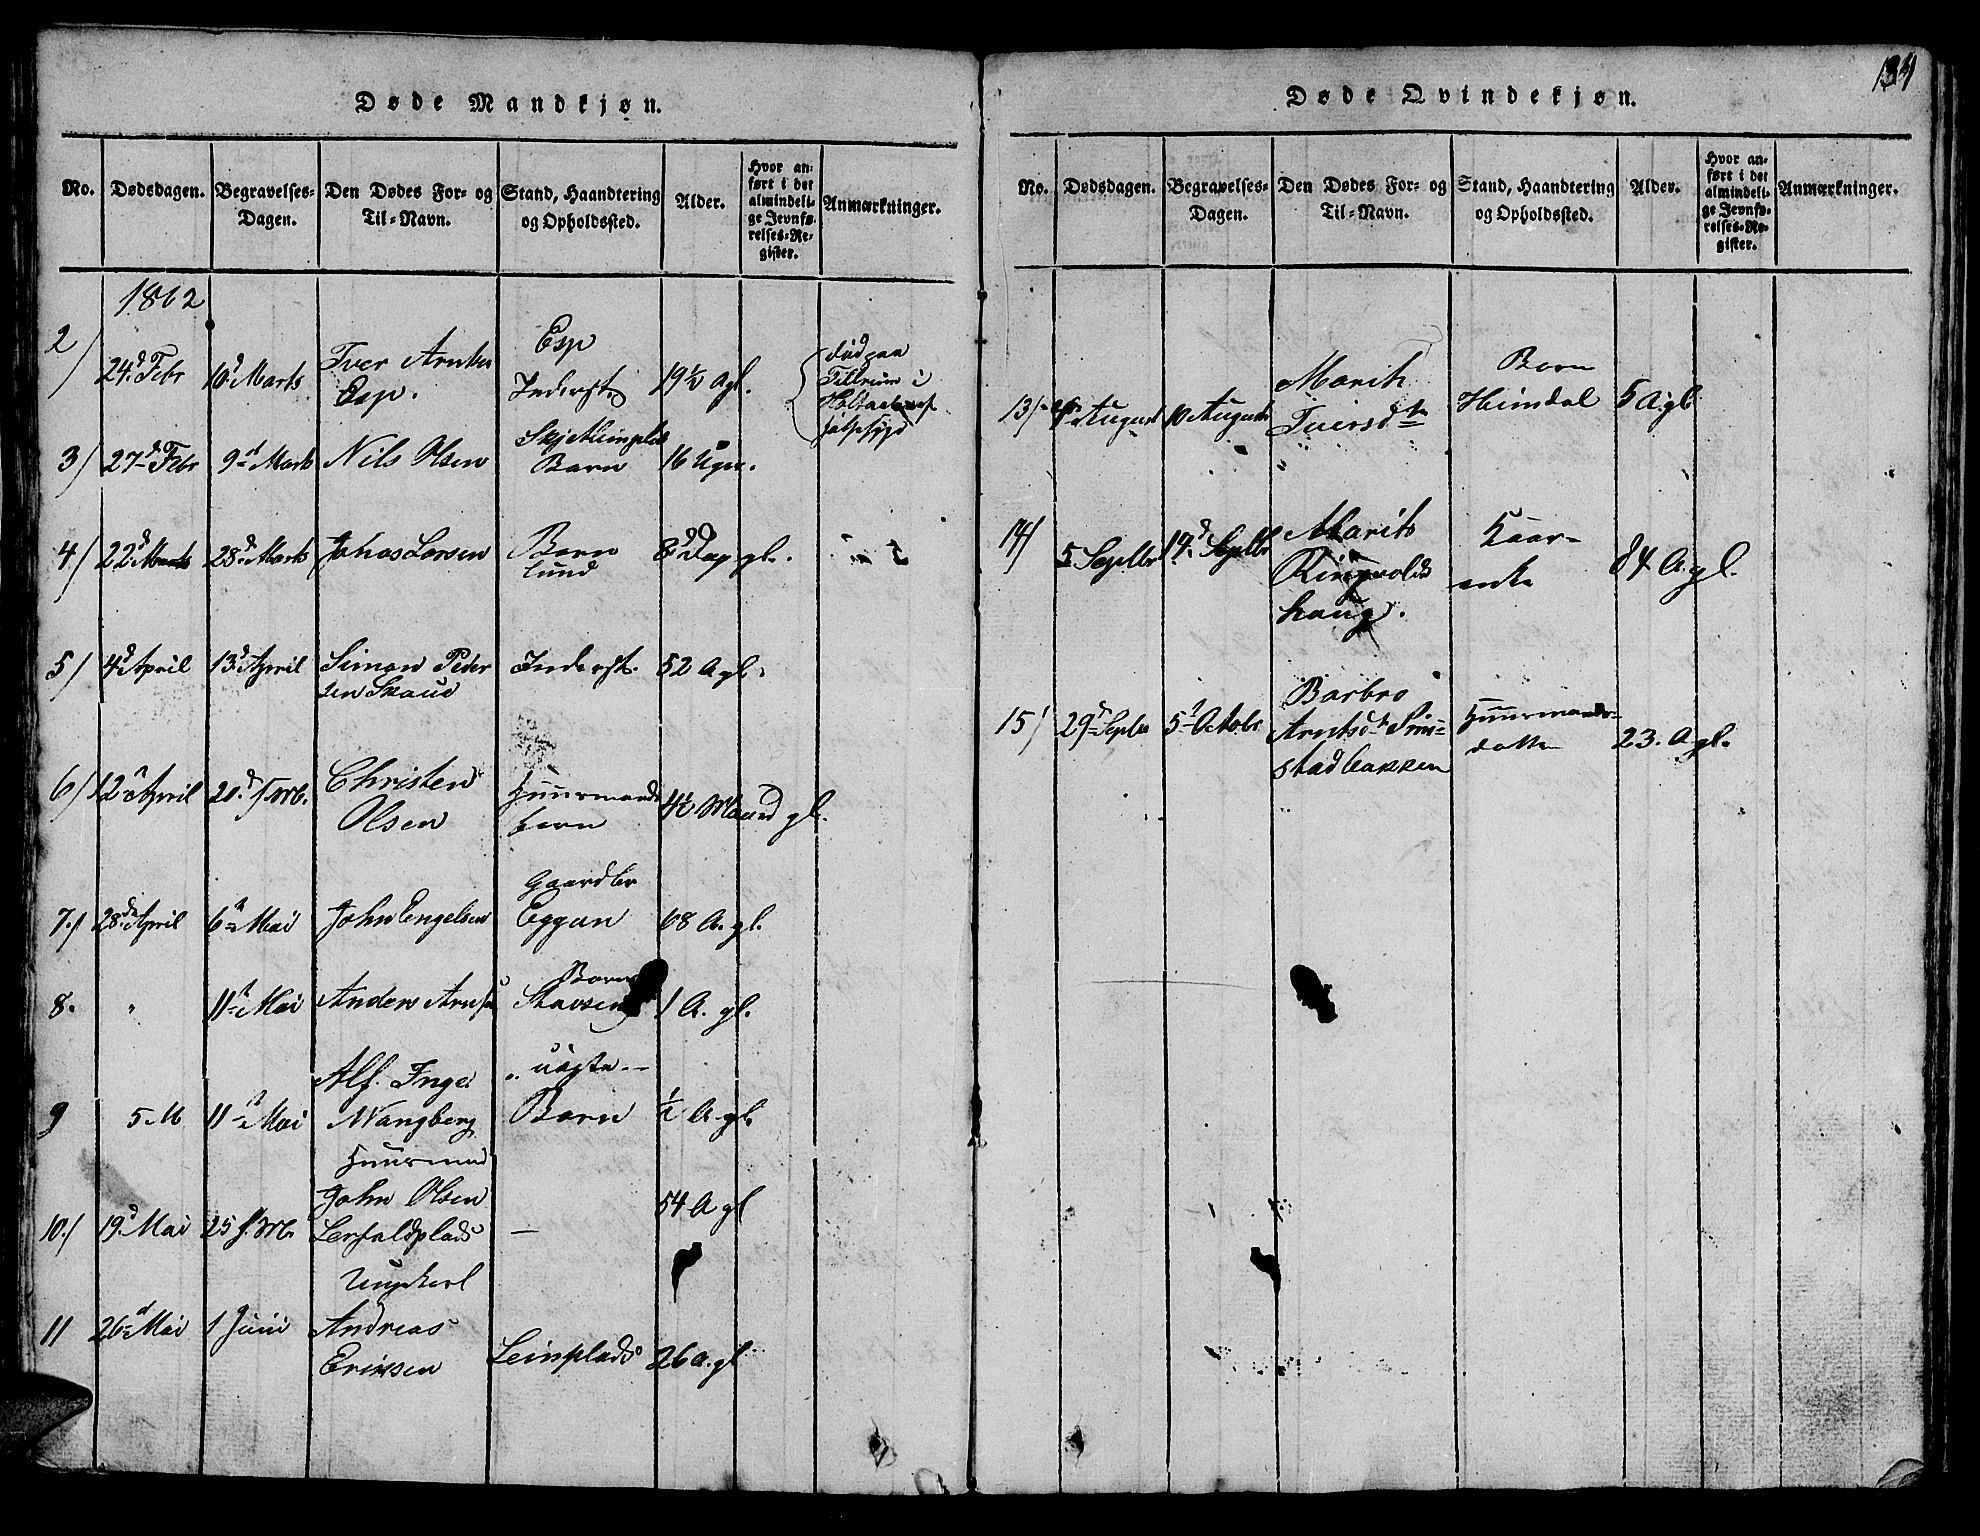 134
Døde Mandkjøn.
No. Dødsdagen. Begravelses-Dagen. Den Dødes For- og Til-Navn. Stand, Haandtering og Opholdssted. Alder. Hvor anført i det almindelige Jevnførelses-Register. Anmærkninger.
1862
2) 24d Febr 10d Marts Iver
Esp. Esp Inderst. 19½ A gl.
3) 27d Febr 9d Marts Nils Olsen
Barn 16 Uger.
4) 22d Marts 28d Marts Johas Larsen Barn
Lund 8 Dag gl.
5) 4d April 13d April Simon Peder
sen Skaud Inderst. 52 A gl.
6) 12 April 20d Christen
Olsen Huusmands
barn 4½ Maaned gl.
7.) 28de April 6te Mai John Engelsen Gaardbr
Eggan 68 A. gl.
8. " 11te Mai Anders Barn
1 A. gl.
9 5 M 11te Mai Alf. Inge
Wangberg uægte
Barn ½ A gl.
Huusmand
10.) 19d Mai 25 John Olsen
Lerfaldplads — 54 A gl
Ungkarl
11 26d Mai 1 Juni Andreas
Eriksen Leinplads 26 A. gl
Døde Qvindekjøn.
No. Dødsdagen. Begravelses-Dagen. Den Dødes For- og Til-Navn. Stand, Haandtering og Opholdssted. Alder. Hvor anført i det almindelige Jevnførelses-Register. Anmærkninger.
13) August 10 August Marit
Iversdtr Barn
Heimdal 5 A gl
14) 5 Septbr 14d Septbr Marit
Ringvolds
haug.
84 A. gl.
15) 29d Septbr 5te Octobr Barbro
Arntsdtr
stadbakken Huusmands-
datter 23. A gl.